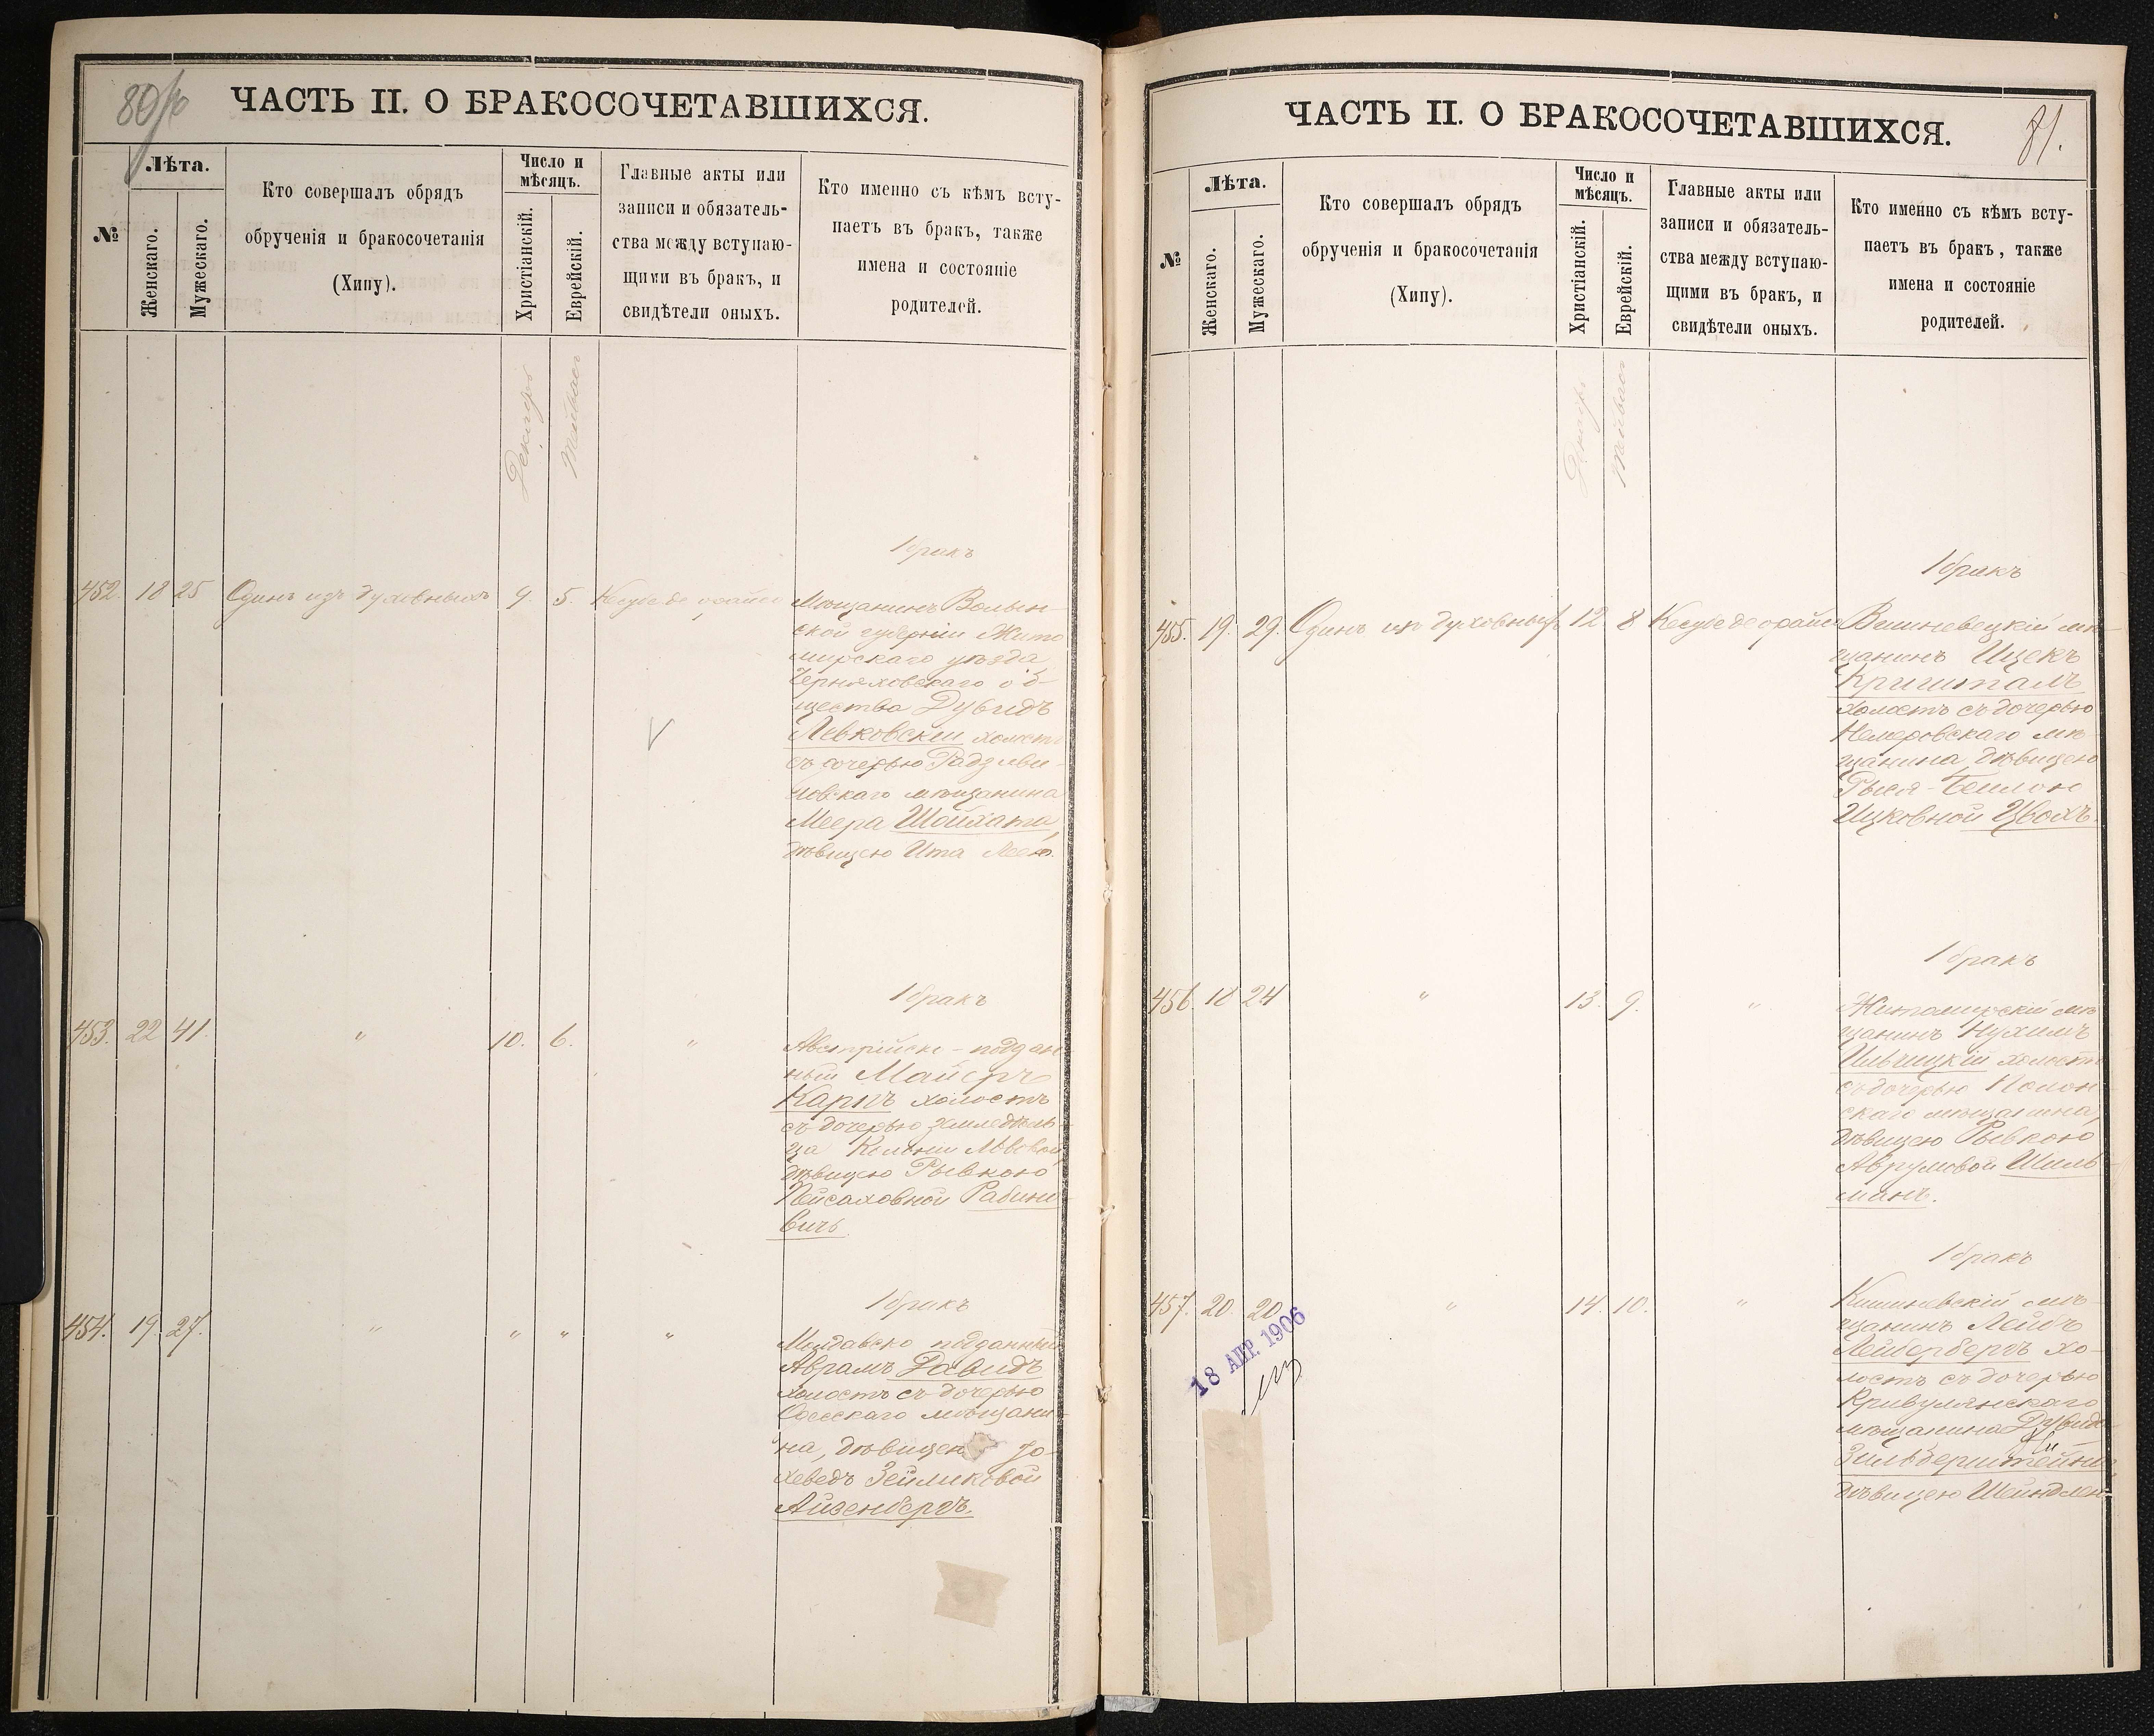 80 об
ЧАСТЬ II. О БРАКОСОЧЕТАВШИХСЯ.
№
Лѣта.
Женскаго.
Мужескаго.
Кто совершалъ обрядъ
обрученія и бракосочетанія
(Хипу).
Число и
мѣсяцъ.
Христіанскій.
Еврейскій.
Главные акты или
записи и обязатель-
ства между вступаю-
щими въ бракъ, и
свидѣтели оныхъ.
Кто именно съ кѣмъ всту-
паетъ въ бракъ, также
имена и состояніе
родителей.
Декабрь
1 бракъ
452. 18 25 Одинъ изъ духовныхъ 9. 5. Кесубе де орайсе Мѣщанинъ Волын-
ской губерніи Жито
мирскаго уѣзда
Черняховскаго об-
щества Дувидъ
Левковскій холостъ
съ дочерью Радзиви-
ловскаго мѣщанина
Меера Шойхата,
дѣвицею Ита Лею.
1 бракъ
453. 22 41. " 10. 6. " Австрійско-поддан
ный Майеръ
Карпъ холостъ
съ дочерью земледѣль-
ца Колоніи Львовой
дѣвицею Рывкою
Пейсаховной Рабино
вичъ.
1 бракъ
454. 19. 27. " " " " Молдавско подданный
Аврамъ Давидъ
холостъ съ дочерью
Одесскаго мѣщани-
на, дѣвицею Іо-
хеведъ Зейликовой
Айзенбергъ.
81.
ЧАСТЬ II. О БРАКОСОЧЕТАВШИХСЯ.
№
Лѣта.
Женскаго.
Мужескаго.
Кто совершалъ обрядъ
обрученія и бракосочетанія
(Хипу).
Число и
мѣсяцъ.
Христіанскій.
Еврейскій.
Главные акты или
записи и обязатель-
ства между вступаю-
щими въ бракъ, и
свидѣтели оныхъ.
Кто именно съ кѣмъ всту-
паетъ въ бракъ, также
имена и состояніе
родителей.
Декабрь
1 бракъ
455. 19. 29. Одинъ изъ духовныхъ 12. 8 Кесубе де орайсе Вишневецкій мѣ-
щанинъ Ицекъ
Кришталъ
холостъ съ дочерью
Немеровскаго мѣ-
щанина, дѣвицею
Рыся-Бейлою
Ицковной Цвокъ.
1 бракъ
456. 18 24 " 13. 9. " Житомирскій мѣ
щанинъ Нухимъ
Ильчицкій холостъ
съ дочерью Полон
скаго мѣщанина,
дѣвицею Рывкою
Аврумовой Шиль
манъ.
1 бракъ
457. 20. 20. " 14. 10. " Кишиневскій мѣ-
щанинъ Лейбъ
Лейдербергъ хо-
лостъ съ дочерью
Кривулянскаго
мѣщанина Дувида
Зильберштейна,
дѣвицею Шейндлею
18 АПР. 1906